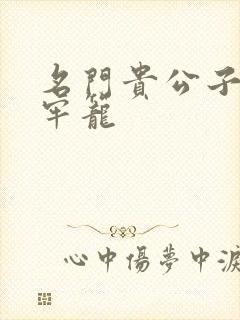 名門貴公子
牢籠
心中傷夢中淚